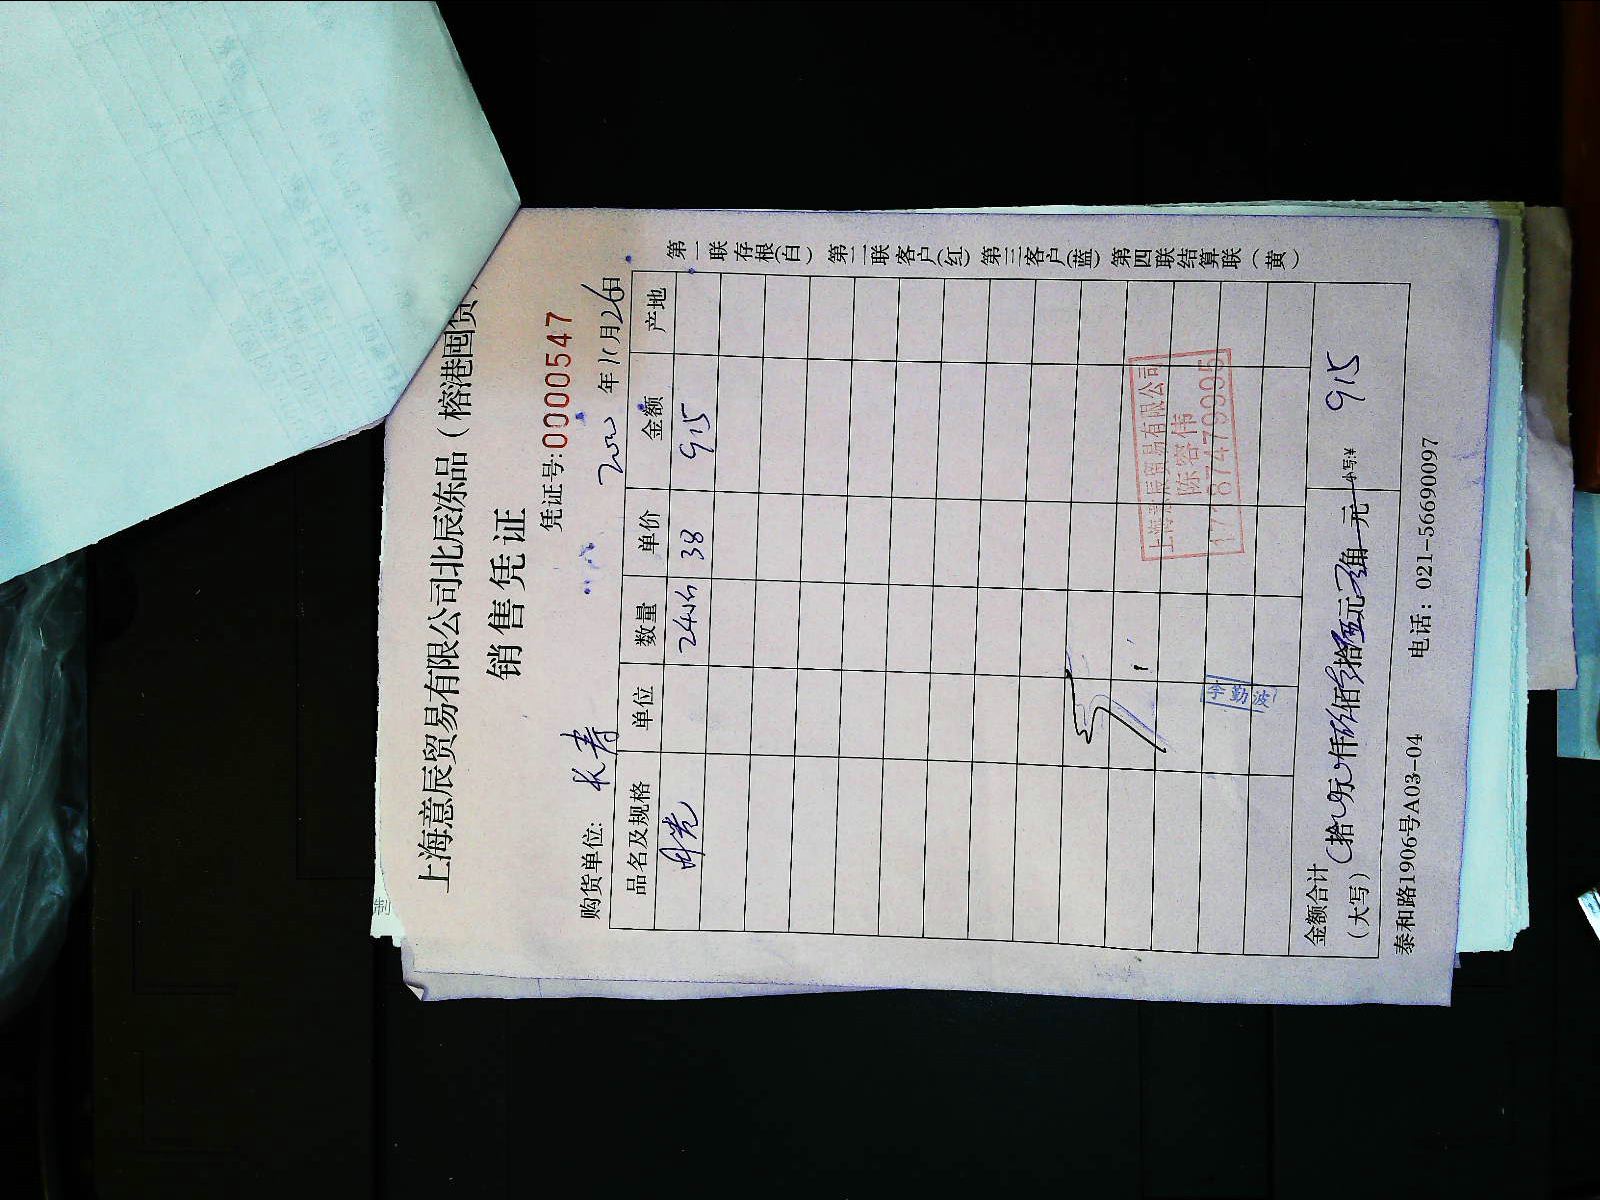 上海意辰贸易有限公司北辰冻品（榕港囤货
销售凭证
凭证号:0000547
购货单位: 长寿
年11月26日
品名及规格 单位 数量 单价 金额 产地
38 915
上海意辰贸易有限公司
陈容伟
李勤波
金额合计
（大写）
拾 万 仟 佰 拾 元 角 元
小写:¥ 915
泰和路1906号A03-04 电话：021-56690097
第一联存根（白） 第二联客户（红） 第三客户（蓝） 第四联结算联（黄）
制